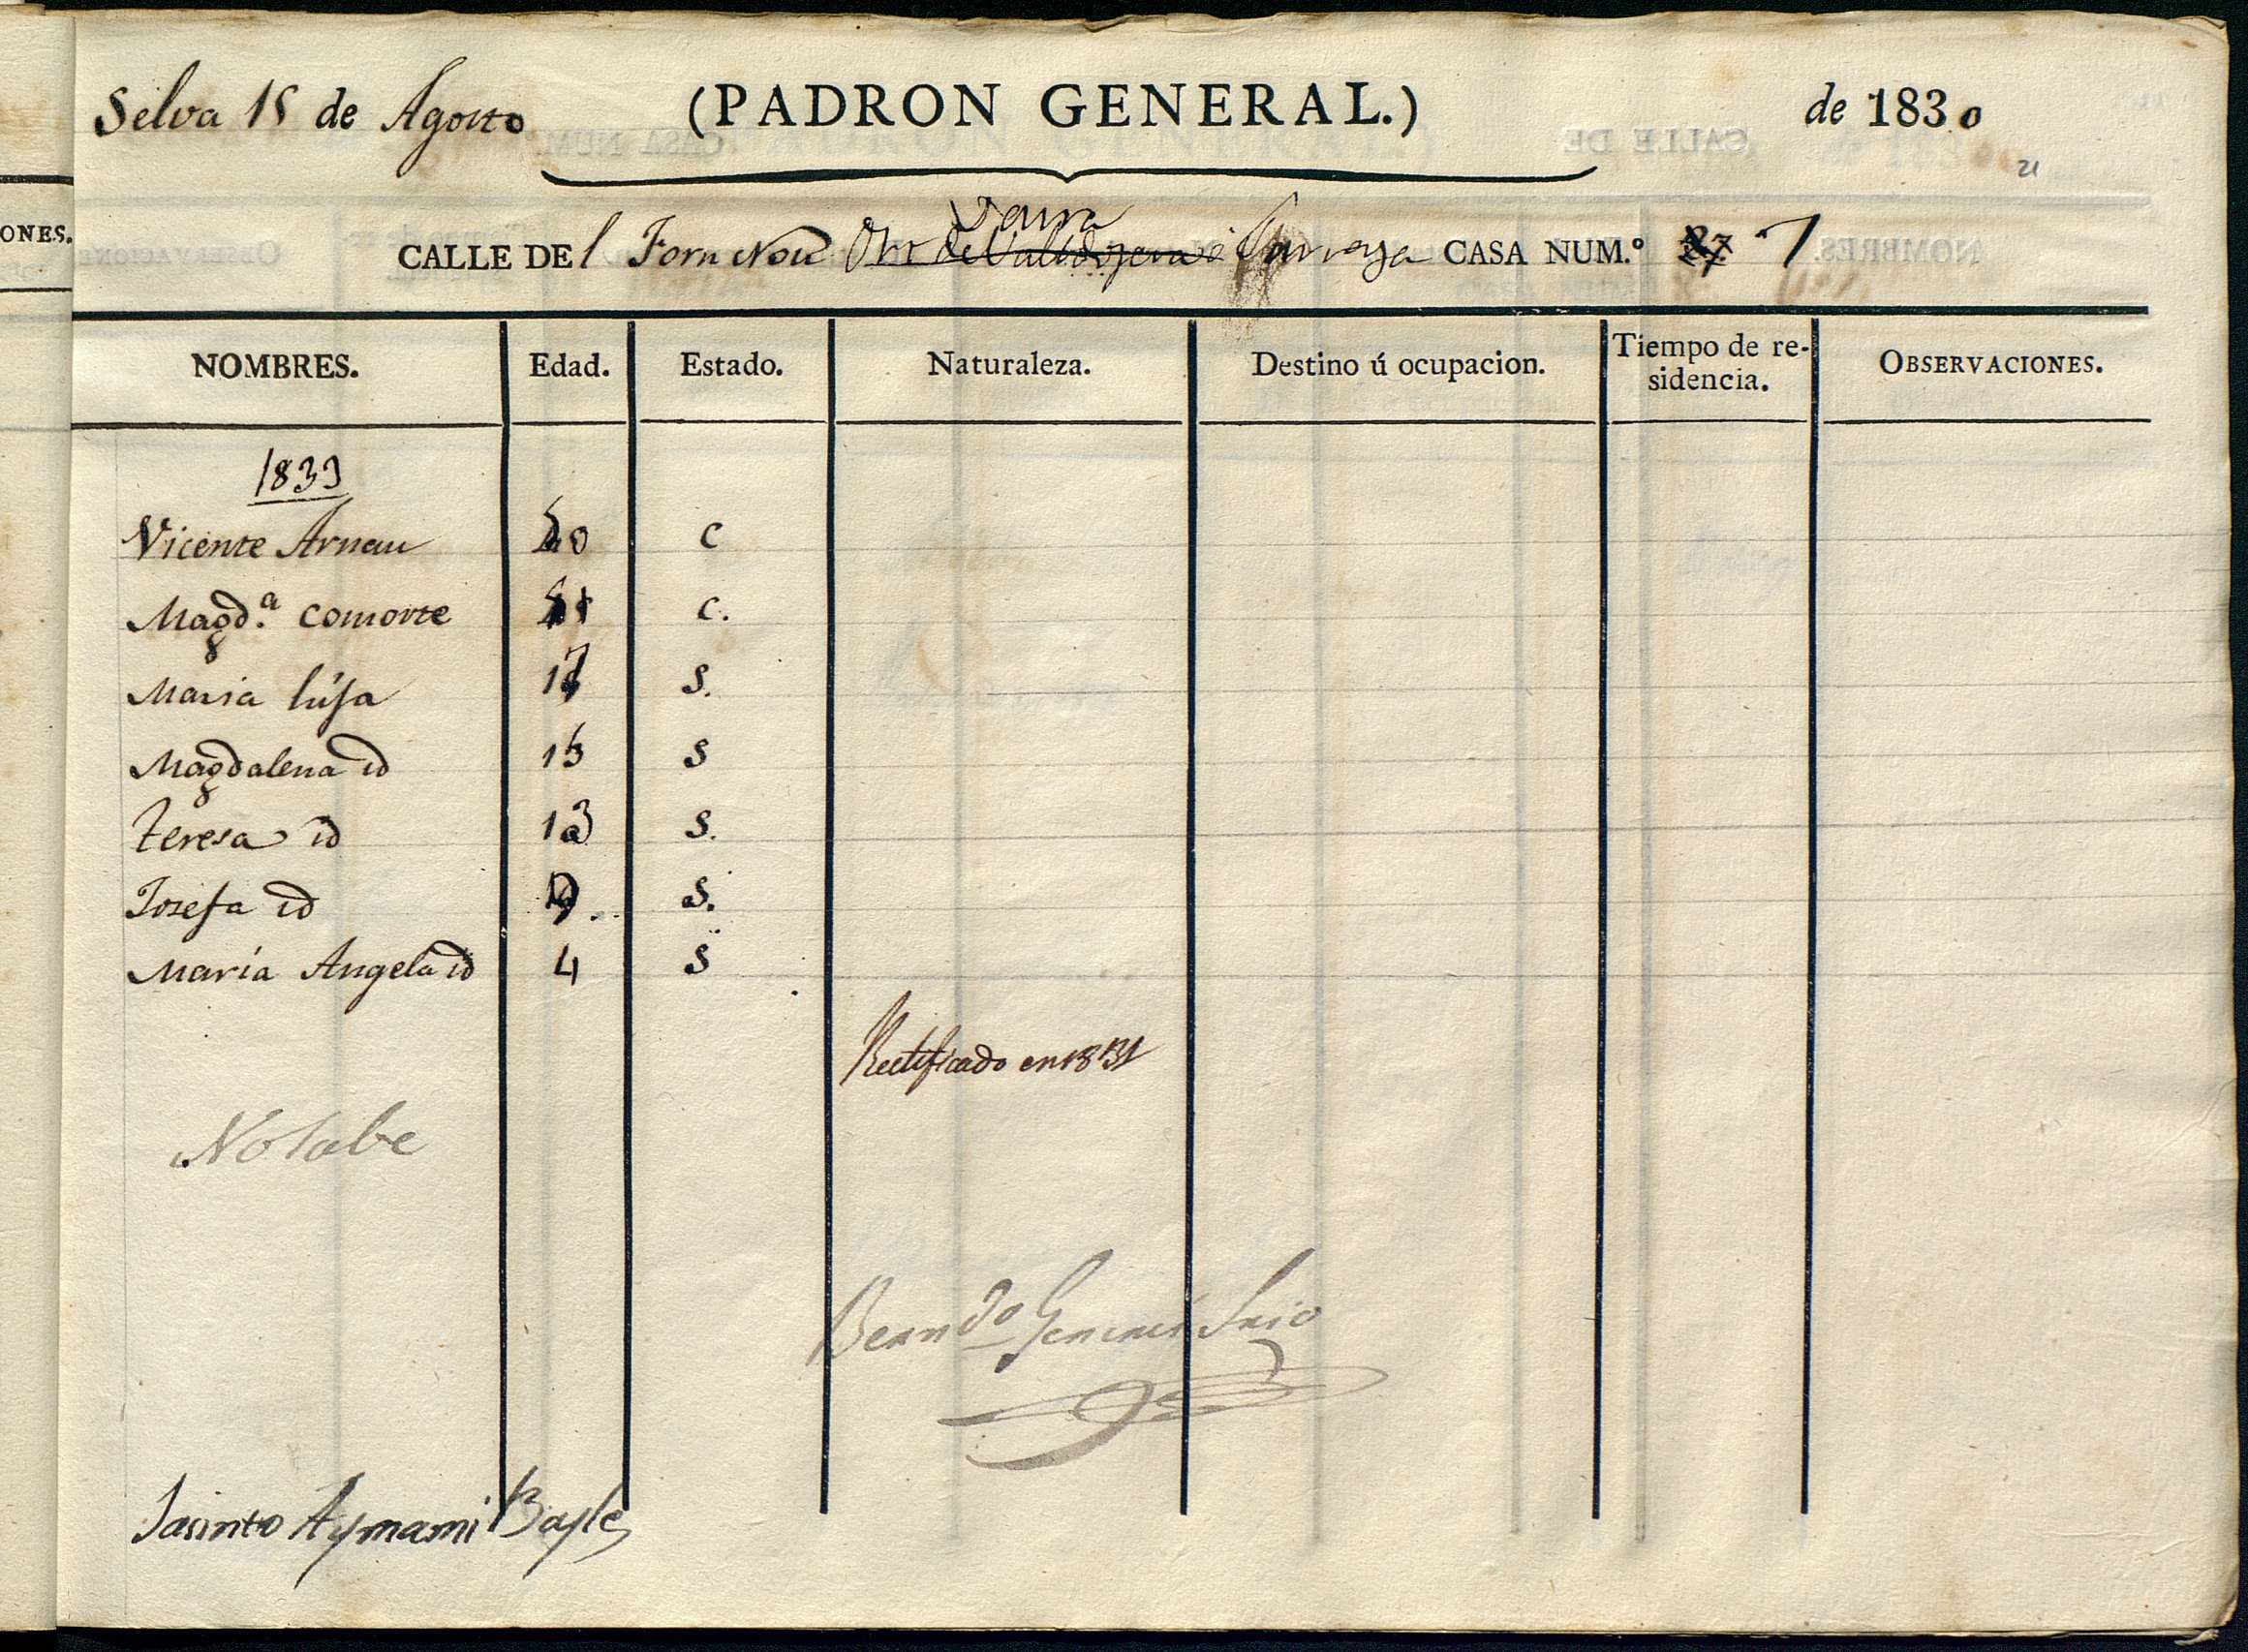 ONES.
Selva 15 de Agosto (PADRON GENERAL.) de 1830
21
CALLE DEl Forn Nou CASA NUM.º 7
NOMBRES. Edad. Estado. Naturaleza. Destino ú ocupacion. Tiempo de re-sidencia. OBSERVACIONES.
1833
Vicente Arnau 50 C
Magd.ª consorte C.
Maria hija 17 S.
Magdalena id 15 S
Teresa id 13 S.
Josefa id 9. S.
María Angela id 4 S
Rectificado en 1831
No sabe
Berndo Generés Srio
Jasinto Aymami Bayle